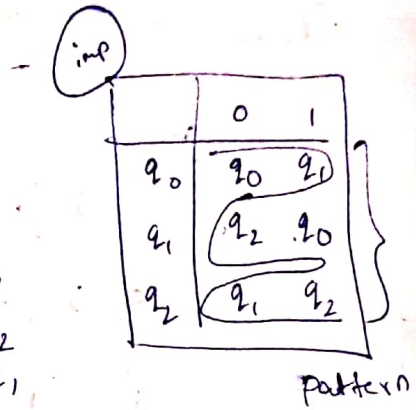 imp
0 1
q0 q0 q1
q1 q2 q0
q2 q1 q2
2
1
pattern